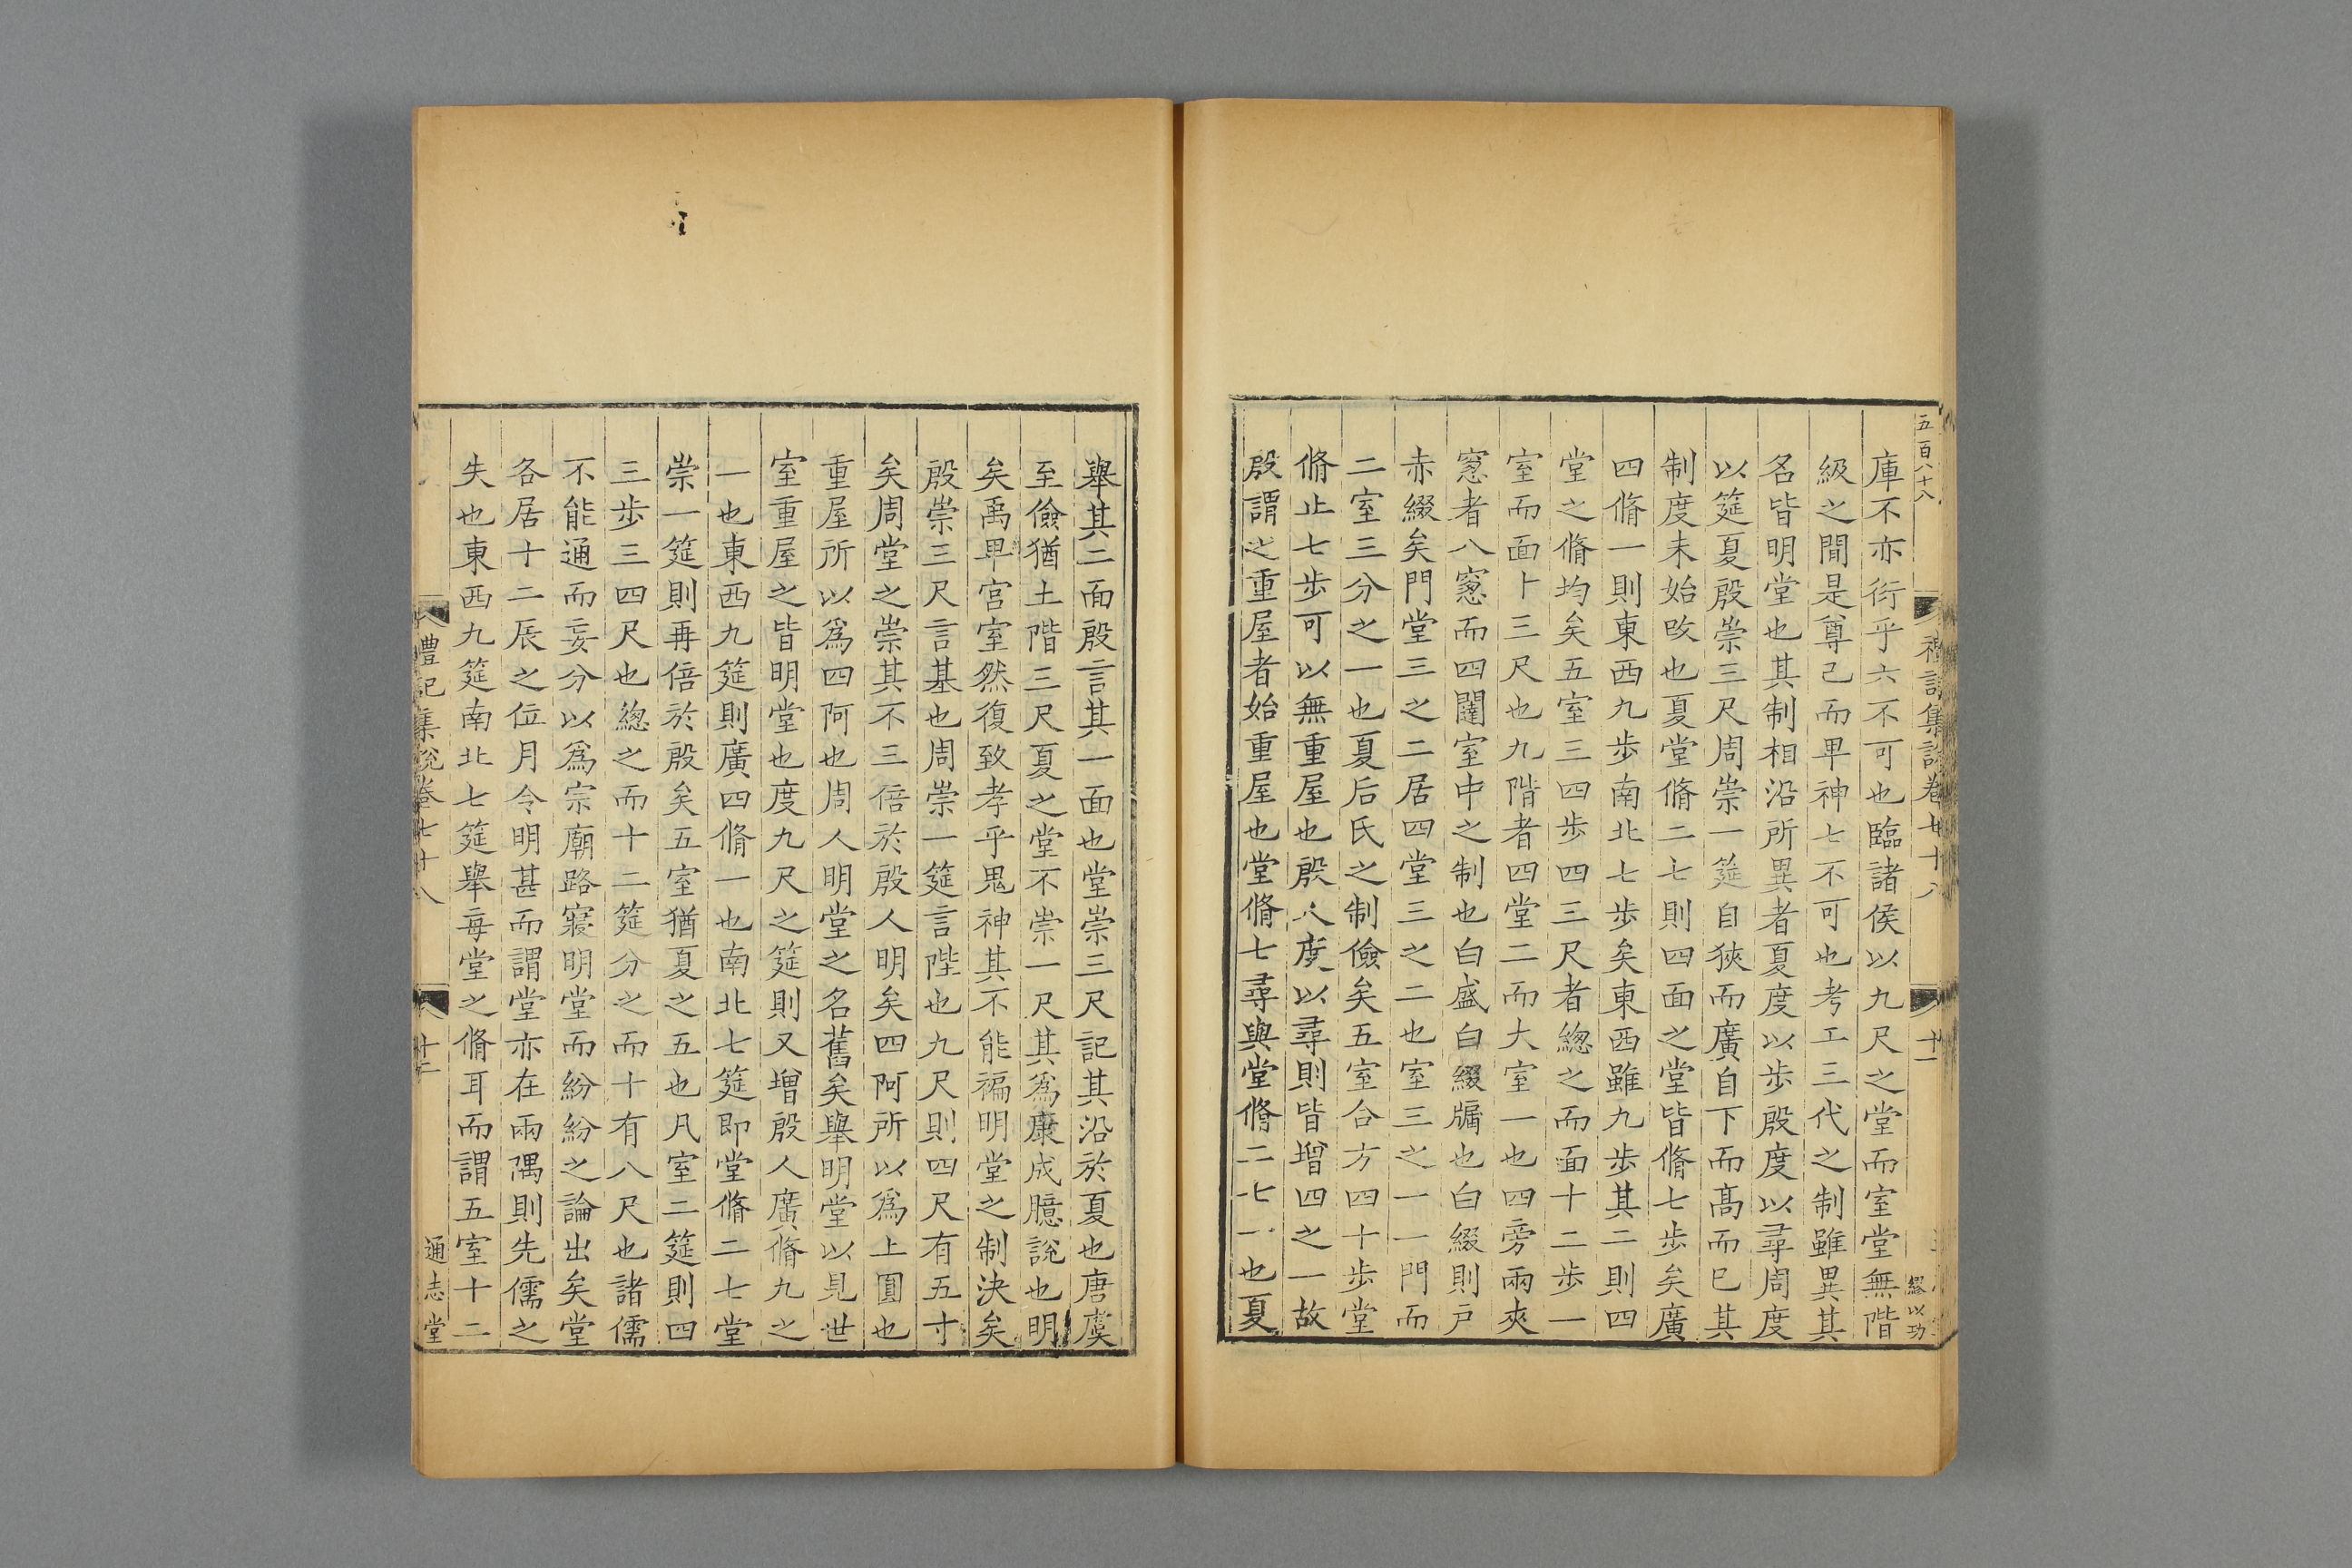 五百八十八
禮記集說卷七十八
十一
繆以功
庫不亦衍乎六不可也臨諸侯以九尺之堂而室堂無階
級之閒是尊己而卑神七不可也考工三代之制雖異其
名皆明堂也其制相沿所異者夏度以步殷度以尋周度
以筵夏殷崇三尺周崇一筵自狹而廣自下而高而已其
制度未始改也夏堂脩二七則四面之堂皆脩七步矣廣
四脩一則東西九步南北七步矣東西雖九步其二則四
堂之脩均矣五室三四步四三尺者總之而面十二步一
室而面十三尺也九階者四堂二而大室一也四旁兩夾
窻者八窻而四闥室中之制也白盛白綴牖也白綴則戶
赤綴矣門堂三之二居四堂三之二也室三之一一門而
二室三分之一也夏后氏之制儉矣五室合方四十步堂
脩止七步可以無重屋也殷人度以尋則皆增四之一故
殷謂之重屋者始重屋也堂脩七尋與堂脩二七一也夏
舉其二面殷言其一面也堂崇三尺記其沿於夏也唐虞
至儉猶土階三尺夏之堂不崇一尺其爲康成臆說也明
矣禹卑宮室然復致孝乎鬼神其不能褊明堂之制決矣
殷崇三尺言基也周崇一筵言陛也九尺則四尺有五寸
矣周堂之崇其不三倍於殷人明矣四阿所以爲上圓也
重屋所以爲四阿也周人明堂之名舊矣舉明堂以見世
室重屋之皆明堂也度九尺之筵則又增殷人廣脩九之
一也東西九筵則廣四脩一也南北七筵即堂脩二七堂
崇一筵則再倍於殷矣五室猶夏之五也凡室二筵則四
三步三四尺也總之而十二筵分之而十有八尺也諸儒
不能通而妄分以爲宗廟路寢明堂而紛紛之論出矣堂
各居十二辰之位月令明甚而謂堂亦在兩隅則先儒之
失也東西九筵南北七筵舉每堂之脩耳而謂五室十二
禮記集說卷七十八
十二
通志堂